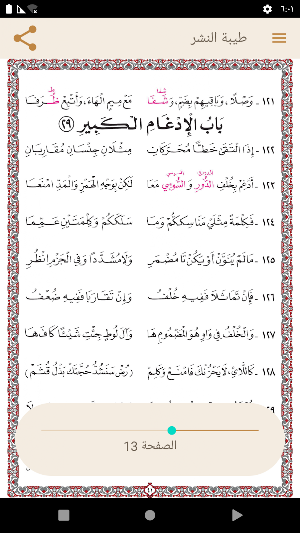 ٦:٠١
طيبة النشر
١٢١ - وَصْلًا، وَبَاقِيهِمْ بِضَمٍّ، وَشَفَا مَعْ مِيمٍ الْهَاءَ، وَأَتْبِعْ ظُرَفَا
بَابُ الْإِدْغَامِ الْكَبِيرِ (٢٩)
١٢٢ - إِذَا الْتَقَى خَطًّا مُحَرَّكَانِ مِثْلَانِ جِنْسَانِ مُقَارِبَانِ
١٢٣ - أَدْغِمْ بِخُلْفِ الدُّورِ وَالسُّوسِي مَعَا لَكِنْ بِوَجْهِ الْهَمْزِ وَالْمَدِّ امْنَعَا
١٢٤ - فَكِلْمَةً مِثْلَيْ مَنَاسِكْكُمْ وَمَا سَلَكَكُمْ وَكِلْمَتَيْنِ عَمِّمَا
١٢٥ - مَا لَمْ يُنَوَّنْ أَوْ يَكُنْ تَا مُضْمَرِ وَلَا مُشَدَّدًا وَفِي الْجَزْمِ انْظُرِ
١٢٦ - فَإِنْ تَمَاثَلَا فَفِيهِ خُلْفُ وَإِنْ تَقَارَبَا فَفِيهِ ضُعْفُ
١٢٧ - وَالْخُلْفُ فِي وَاوِ هُوَ الْمَضْمُومِ هَا وَآلَ لُوطٍ جِئْتِ شَيْئًا كَافَ هَا
١٢٨ - كَاللَّائِي، لَا يَحْزُنْكَ فَامْنَعْ وَكَلِمْ (رُضْ سَنَشُدُّ حُجَّتَكَ بَذْلُ قُثَمْ)
الصفحة 13